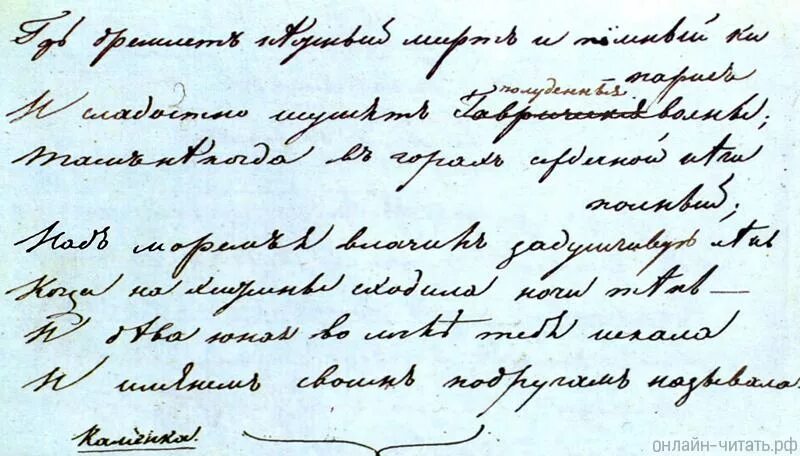 Гдѣ дремлетъ нѣжный миртъ и тёмный ки
парисъ
полуденныя
И сладостно шумятъ Таврическия волны;
Тамъ нѣкогда въ горахъ сердечной нѣги
полный;
Надъ моремъ я влачилъ задумчивую лѣнь
Когда на хижины сходила ночи тѣнь —
И дѣва юная во мглѣ тебя искала
И имянемъ своимъ подругамъ называла.
Каменка.
онлайн-читать.рф